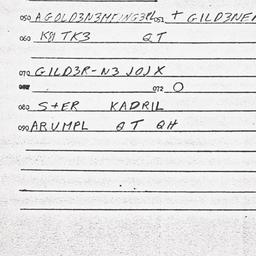 050 AGOLD3N3MTJNG3RL 051 + GILD3NE
060 K§1 TK3 QT
070 GILD3R-N3 JOJX
072 O
080 S+ER KADRIL
090 ARUMPL QT QH